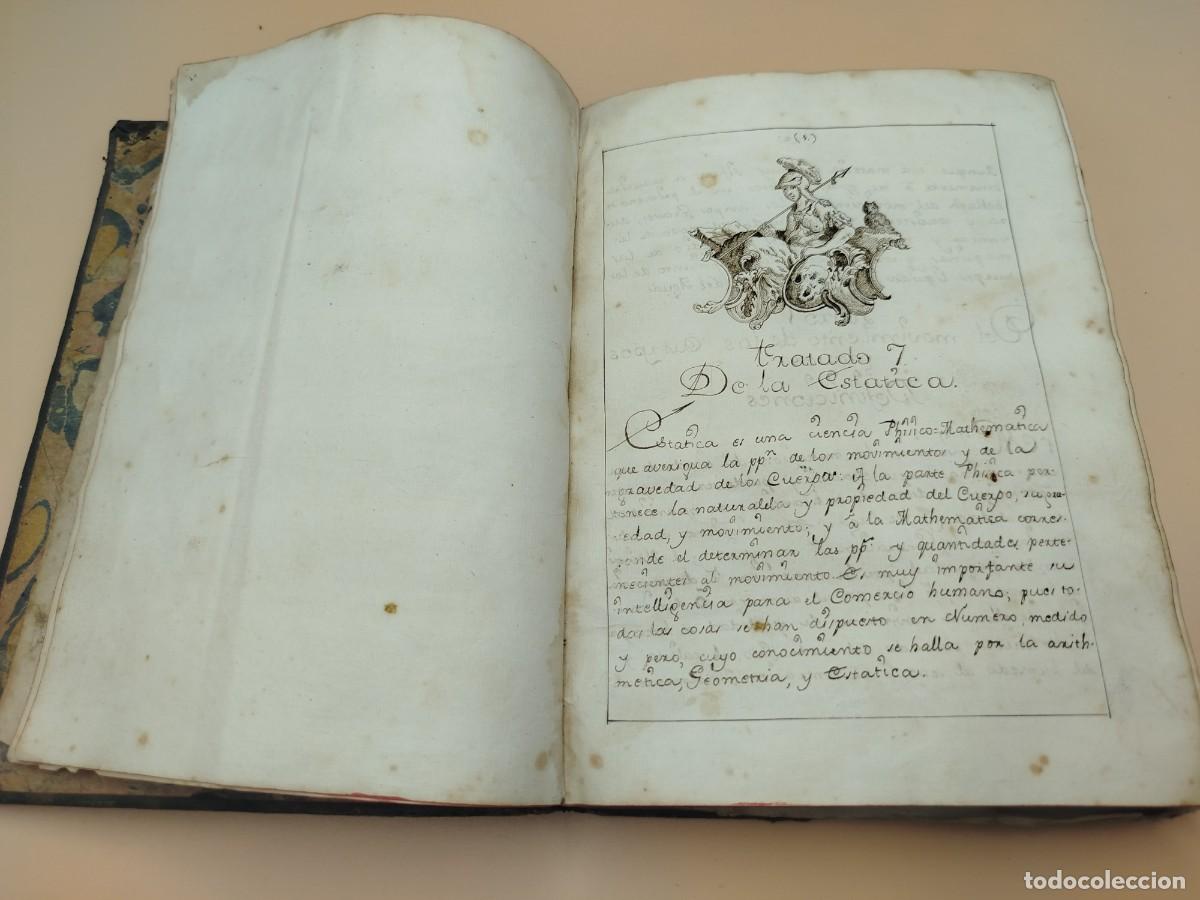 (1.)
tratado 7.
De la Estatica.
Estatica es una ciencia Phisico=Mathematica
que averigua la ppn. de los movimientos y de la
gravedad de los Cuerpos. A la parte Phisica per-
tenece la naturalesa y propiedad del Cuerpo, su gra-
vedad, y movimiento; y â la Mathematica corres-
ponde el determinar las pp.s y quantidades perte-
necientes al movimiento. Es muy importante su
intelligencia para el Comercio humano; pues to-
das las cosas se han dispuesto en Numero, medido
y peso, cuyo conocimiento se halla por la arith-
metica, Geometria, y Estatica.
todocoleccion